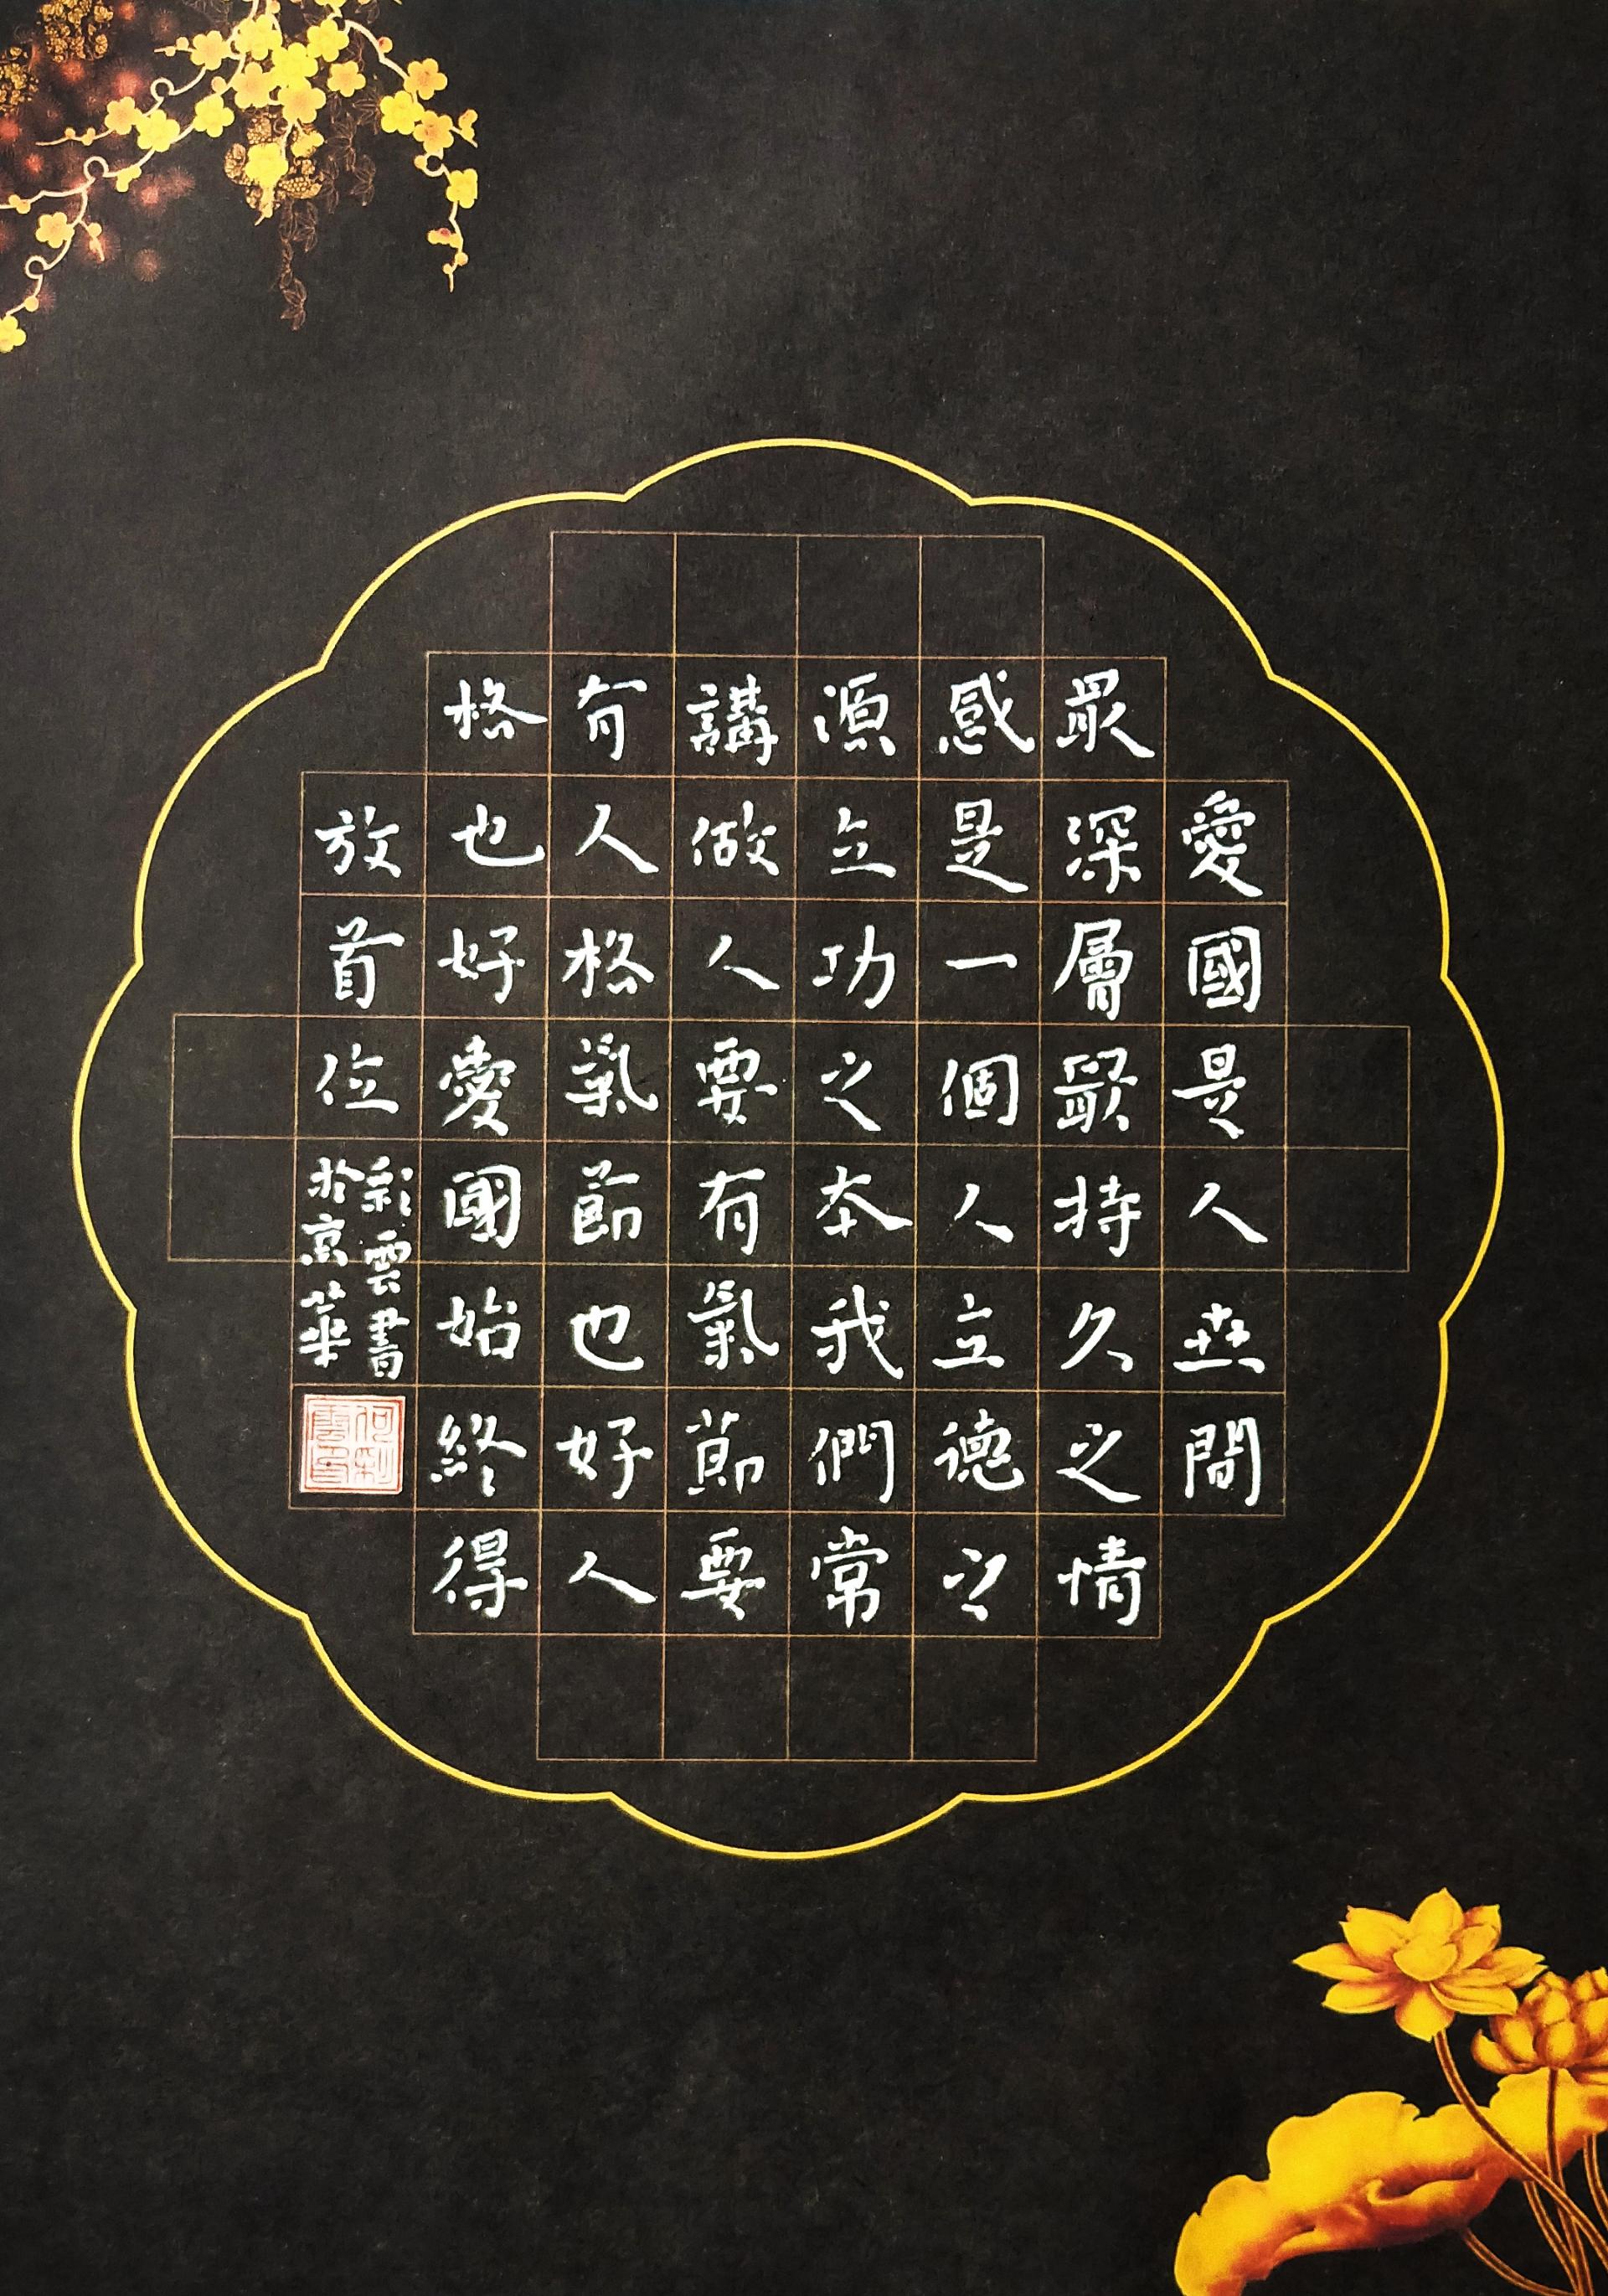 愛國是人世間
最深層最持久之情
感是一個人立德之
源立功之本我們常
講做人要有氣節要
有人格氣節也好人
格也好愛國始終得
放首位
彩雲書
於京華
何彩雲印